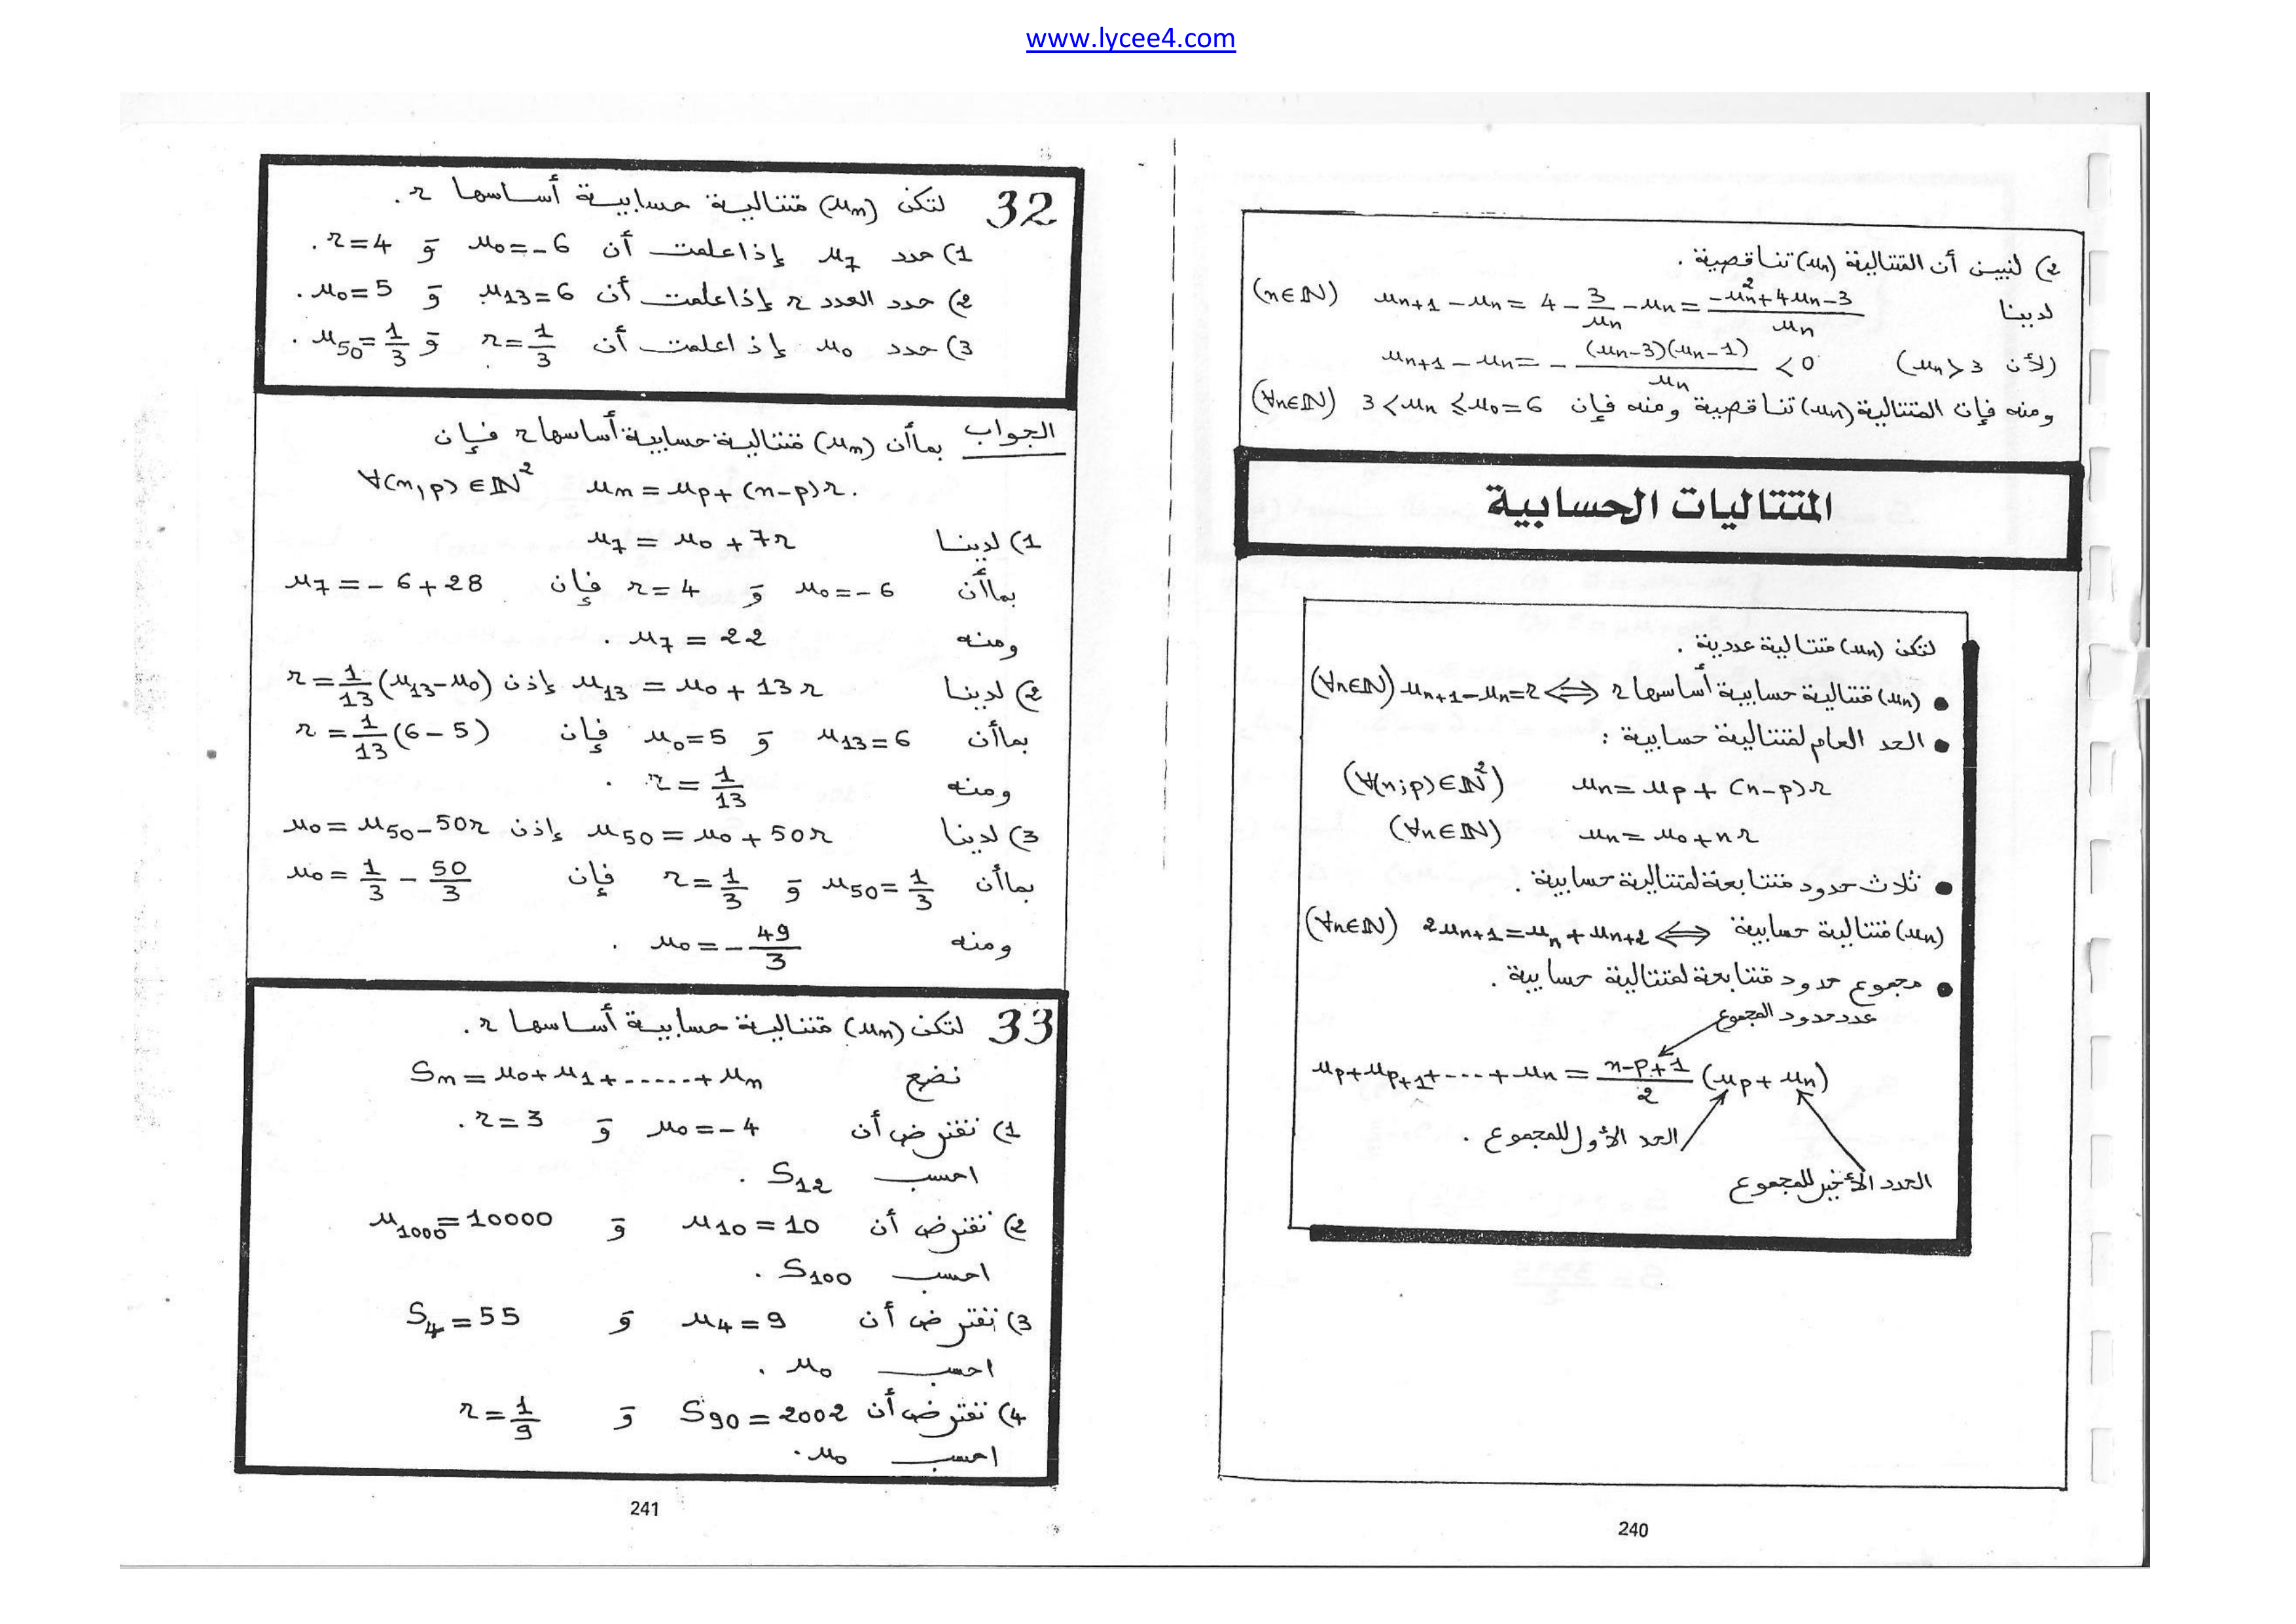 www.lycee4.com
2) لنبين أن المتتالية (u_n) تناقصية .
لدينا u_{n+1} - u_n = 4 - \frac{3}{u_n} - u_n = \frac{-u_n^2 + 4u_n - 3}{u_n} (n∈ℕ)
u_{n+1} - u_n = -\frac{(u_n-3)(u_n-1)}{u_n} < 0 (لأن u_n > 3)
ومنه فإن المتتالية (u_n) تناقصية ومنه فإن 3 < u_n ≤ u_0 = 6 (∀n∈ℕ)
المتتاليات الحسابية
لتكن (u_n) متتالية عددية .
• (u_n) متتالية حسابية أساسها r ⟺ u_{n+1} - u_n = r (∀n∈ℕ)
• الحد العام لمتتالية حسابية :
u_n = u_p + (n-p)r (∀(n;p)∈ℕ²)
u_n = u_0 + nr (∀n∈ℕ)
• ثلاث حدود متتابعة لمتتالية حسابية .
(u_n) متتالية حسابية ⟺ 2u_{n+1} = u_n + u_{n+2} (∀n∈ℕ)
• مجموع حدود متتابعة لمتتالية حسابية .
عدد حدود المجموع
u_p + u_{p+1} + ... + u_n = \frac{n-p+1}{2} (u_p + u_n)
الحد الأول للمجموع .
الحد الأخير للمجموع
240
32 لتكن (u_n) متتالية حسابية أساسها r .
1) حدد u_7 إذا علمت أن u_0 = -6 و r = 4 .
2) حدد العدد r إذا علمت أن u_{13} = 6 و u_0 = 5 .
3) حدد u_0 إذا علمت أن r = \frac{1}{3} و u_{50} = \frac{1}{3} .
الجواب بما أن (u_n) متتالية حسابية أساسها r فإن
∀(n,p)∈ℕ² u_n = u_p + (n-p)r .
1) لدينا u_7 = u_0 + 7r
بما أن u_0 = -6 و r = 4 فإن u_7 = -6 + 28
ومنه u_7 = 22 .
2) لدينا u_{13} = u_0 + 13r إذن r = \frac{1}{13}(u_{13} - u_0)
بما أن u_{13} = 6 و u_0 = 5 فإن r = \frac{1}{13}(6 - 5)
ومنه r = \frac{1}{13} .
3) لدينا u_{50} = u_0 + 50r إذن u_0 = u_{50} - 50r
بما أن u_{50} = \frac{1}{3} و r = \frac{1}{3} فإن u_0 = \frac{1}{3} - \frac{50}{3}
ومنه u_0 = -\frac{49}{3} .
33 لتكن (u_n) متتالية حسابية أساسها r .
نضع S_n = u_0 + u_1 + ...... + u_n
1) نفترض أن u_0 = -4 و r = 3 .
احسب S_{12} .
2) نفترض أن u_{10} = 10 و u_{1000} = 10000
احسب S_{100} .
3) نفترض أن u_4 = 9 و S_4 = 55
احسب u_0 .
4) نفترض أن S_{90} = 2002 و r = \frac{1}{9}
احسب u_0 .
241